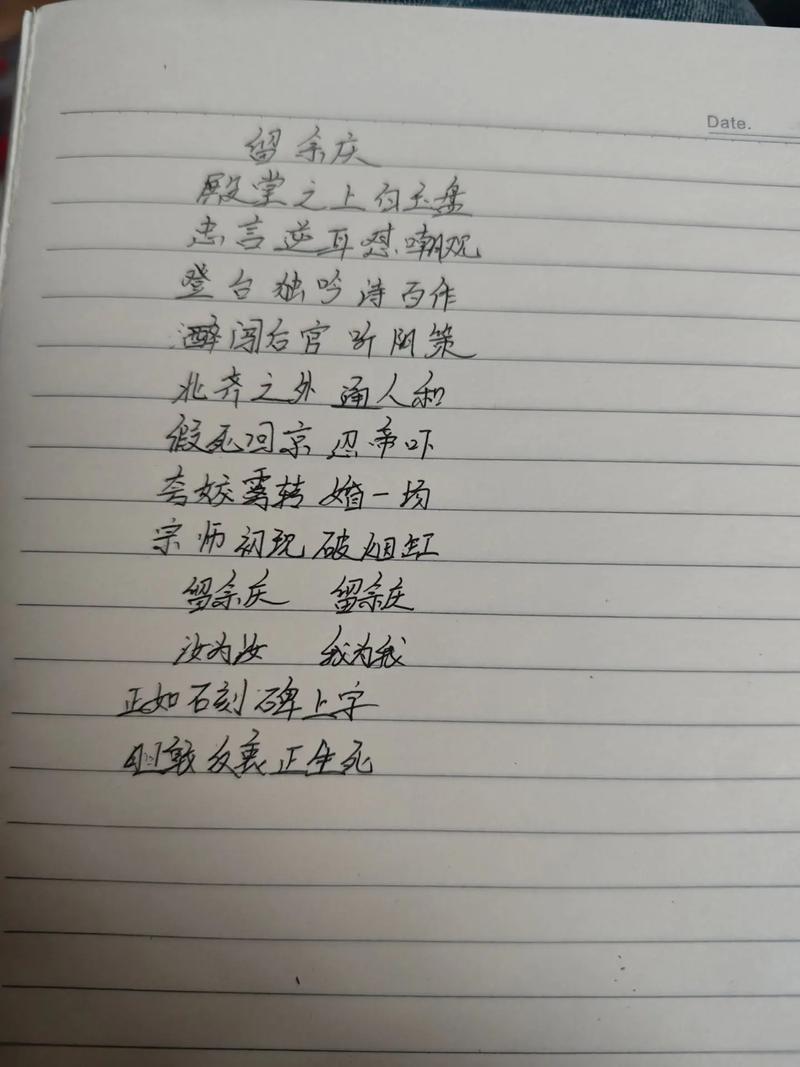 Date.
留余庆
殿堂之上白玉盘
忠言逆耳怼嘲观
登台独吟诗百作
醉闯后宫听阴策
北齐之外通人和
假死回京忍帝吓
夸姣需转婚一场
宗师初现破
留余庆 留余庆
汝为汝 我为我
正如石刻碑上字
敢反裹正生死